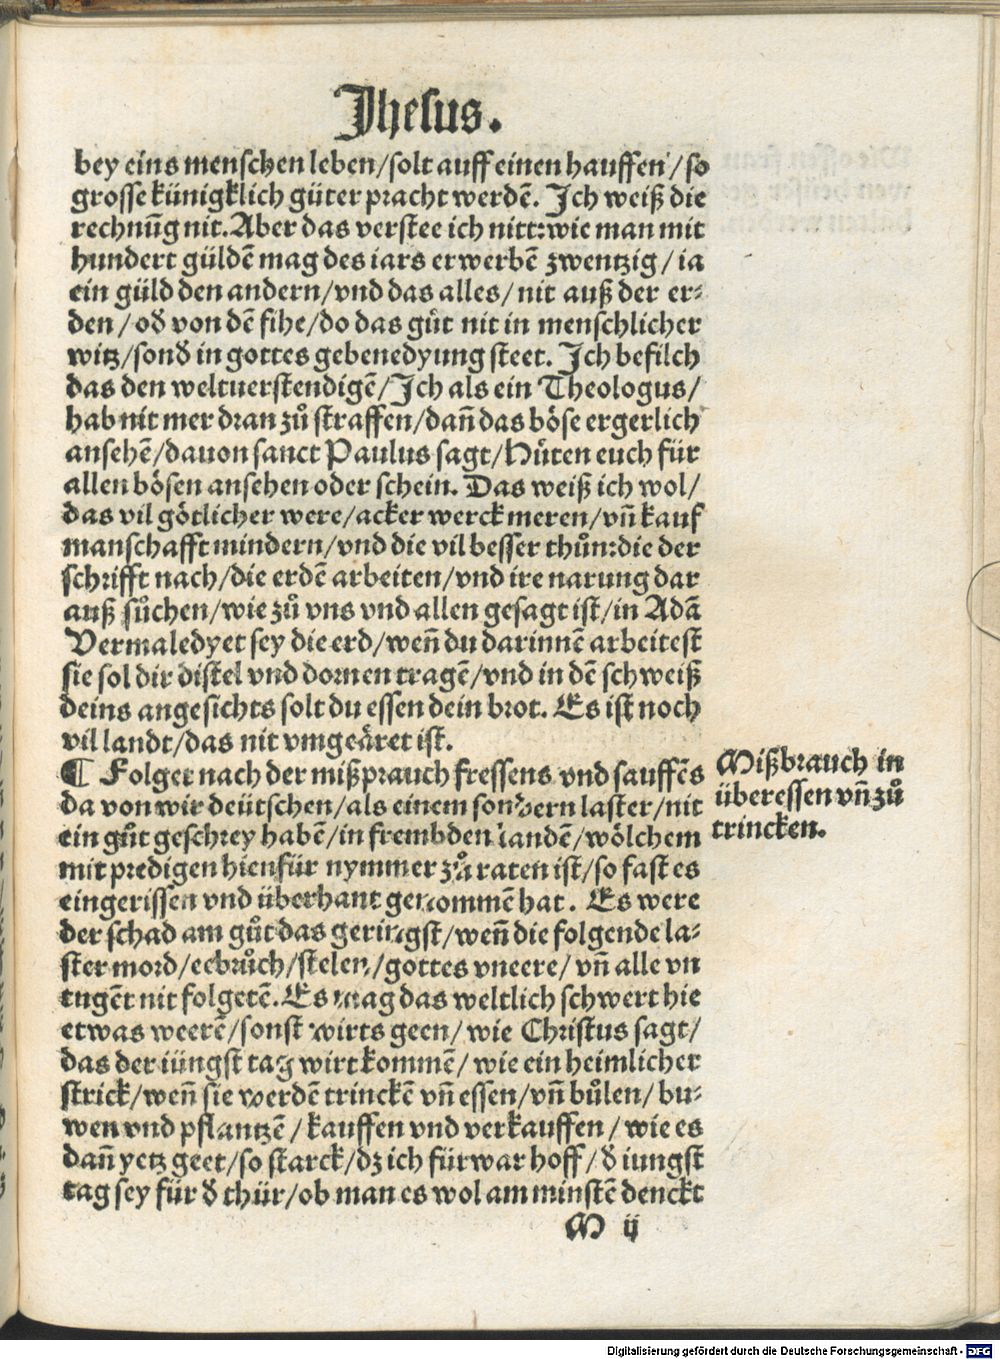 Jhesus.
bey eins menschen leben/solt auff einen hauffen/so
grosse künigklich güter pracht werdē. Jch weiß die
rechnūg nit. Aber das verstee ich nitt: wie man mit
hundert güldē mag des iars erwerbē zwentzig/ ia
ein güld den andern/vnd das alles/ nit auß der er⸗
den/od̕ von dē fihe/do das gůt nit in menschlicher
witz/sond̕ in gottes gebenedyung steet. Jch befilch
das den weltuerstendigē/Jch als ein Theologus/
hab nit mer dran zů straffen/dañ das böse ergerlich
ansehē/dauon sanct Paulus sagt/Hůten euch für
allen bösen ansehen oder schein. Das weiß ich wol/
das vil götlicher were/acker werck meren/vñ kauf
manschafft mindern/vnd die vil besser thůn: die der
schrifft nach/die erdē arbeiten/vnd ire narung dar
auß sůchen/wie zů vns vnd allen gesagt ist/in Adā
Vermaledyet sey die erd/weñ du darinnē arbeitest
sie sol dir distel vnd dornen tragē/vnd in dē schweiß
deins angesichts solt du essen dein brot. Es ist noch
vil landt/das nit vmgeäret ist.
¶ Folget nach der mißprauch fressens vnd sauffēs
da von wir deütschen/als einem sondern laster/nit
ein gůt geschrey habē/in frembden landē/wölchem
mit predigen hienfür nymmer zů raten ist/so fast es
eingerissen vnd überhant genommē hat. Es were
der schad am gůt das geringst/weñ die folgende la⸗
ster mord/eebrůch/stelen/gottes vneere/ vñ alle vn
tugēt nit folgetē. Es mag das weltlich schwert hie
etwas weerē/sonst wirts geen/ wie Christus sagt/
das der iüngst tag wirt kommē/ wie ein heimlicher
strick/weñ sie werdē trinckē vñ essen/vñ bůlen/ bu⸗
wen vnd pflantzē/ kauffen vnd verkauffen/ wie es
dañ yetz geet/so starck/dz ich fürwar hoff/ d̕ iungst
tag sey für d̕ thür/ob man es wol am minstē denckt
Mißbrauch in
überessen vñ zů
trincken.
M ij
Digitalisierung gefördert durch die Deutsche Forschungsgemeinschaft - DFG